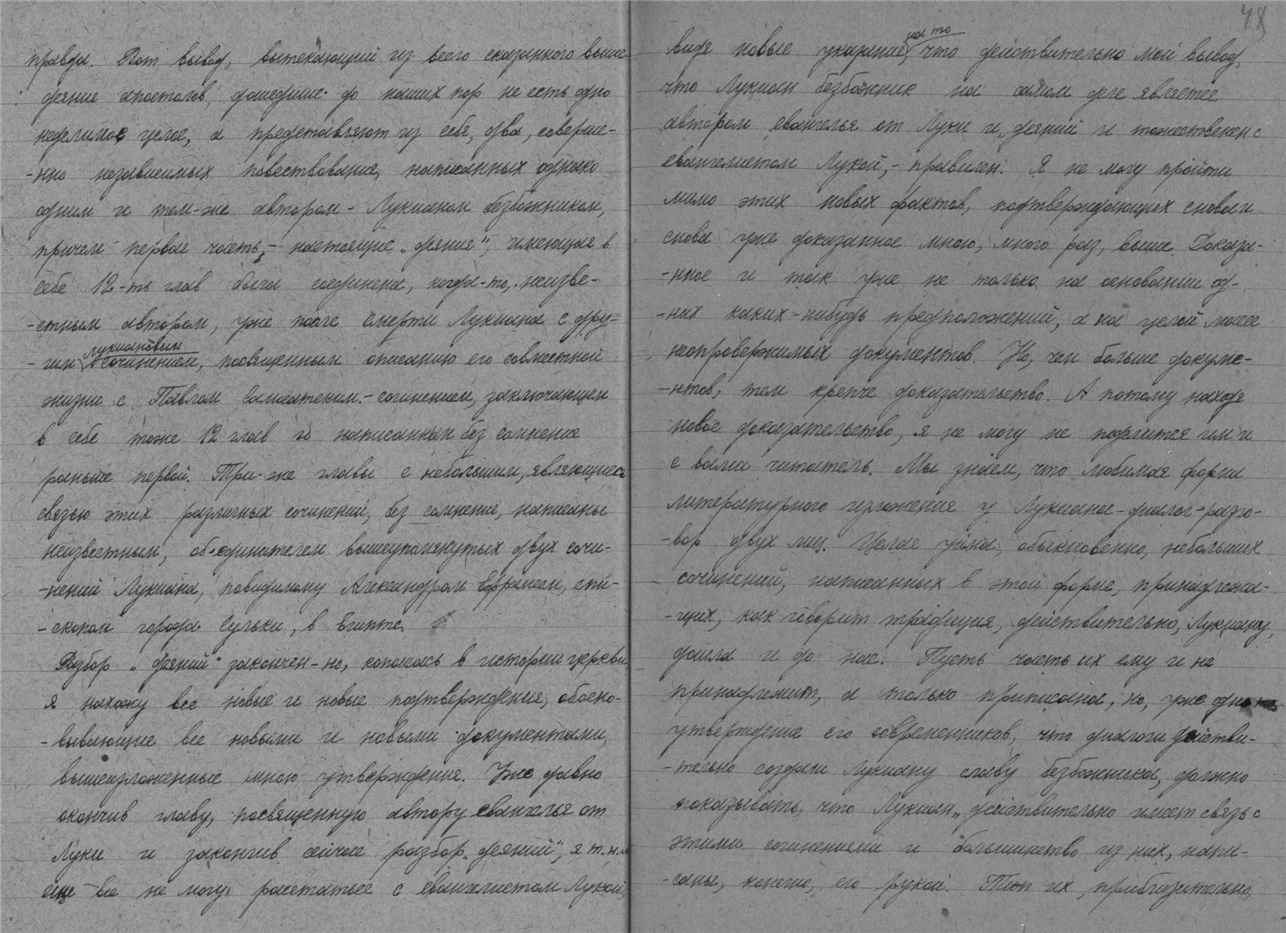 правда. Вот вывод, вытекающий из всего сказанного выше
деяние апостолов, дошедшие до наших пор не есть одно
неделимое целое, а представляют из себя, два, соверше-
-нно независимых повествования, написанных однако
одним и тем-же автором - Лукианом безбожником,
причем первая часть, - настоящие „деяния", имеющая в
себе 12-ть глав была соединена, когда-то, неизве-
-стным автором, уже после смерти Лукиана с дру-
-гим лукиановым сочинением, посвященным описанию его совместной
жизни с Павлом Самосатским - сочинением, заключающем
в себе тоже 12 глав и написанным без сомнения
раньше первой. Три-же главы с небольшим, являющиеся
связью этих различных сочинений, без сомнения, написаны
неизвестным, объединителем вышеупомянутых двух сочи-
-нений Лукиана, повидимому Александром, епи-
-скопом города в Египте.
Разбор „деяний" закончен - но, копаясь в истории церкви
я нахожу все новые и новые подтверждения, обосно-
-вывающие все новыми и новыми документами,
вышеизложенные мною утверждения. Уже давно
окончив главу, посвященную автору евангелья от
Луки и закончив сейчас разбор „деяний", я
еще все не могу расстаться с евангелистом Лукой,
48
видя новые указания, на то что действительно мой вывод,
что Лукиан безбожник на самом деле является
автором евангелья от Луки и „деяний и тожественен с
евангелистом Лукой, - правилен. Я не могу пройти
мимо этих новых фактов, подтверждающих снова и
снова уже доказанное мною, много раз, выше. Доказа-
-нное и так уже не только на основании од-
-них каких-нибудь предположений, а на целой массе
неопровержимых документов. Но, чем больше докуме-
-нтов, тем крепче доказательство. А потому найдя
новое доказательство, я не могу не поделится им и
с вами читатель. Мы знаем, что любимая форма
литературного изложения у Лукиана - диалог - разго-
-вор двух лиц. Целая уйма, обыкновенно, небольших
сочинений, написанных в этой форме, принадлежа-
-щих, как говорит традиция, действительно, Лукиану,
дошла и до нас. Пусть часть их ему и не
принадлежит, а только приписана, но, уже одно
утверждение его современников, что диалоги действи-
-тельно создали Лукиану славу безбожника, должно
показывать, что Лукиан, действительно имеет связь с
этими сочинениями и большинство из них, напи-
-саны, конечно, его рукой. Тип их, приблизительно,